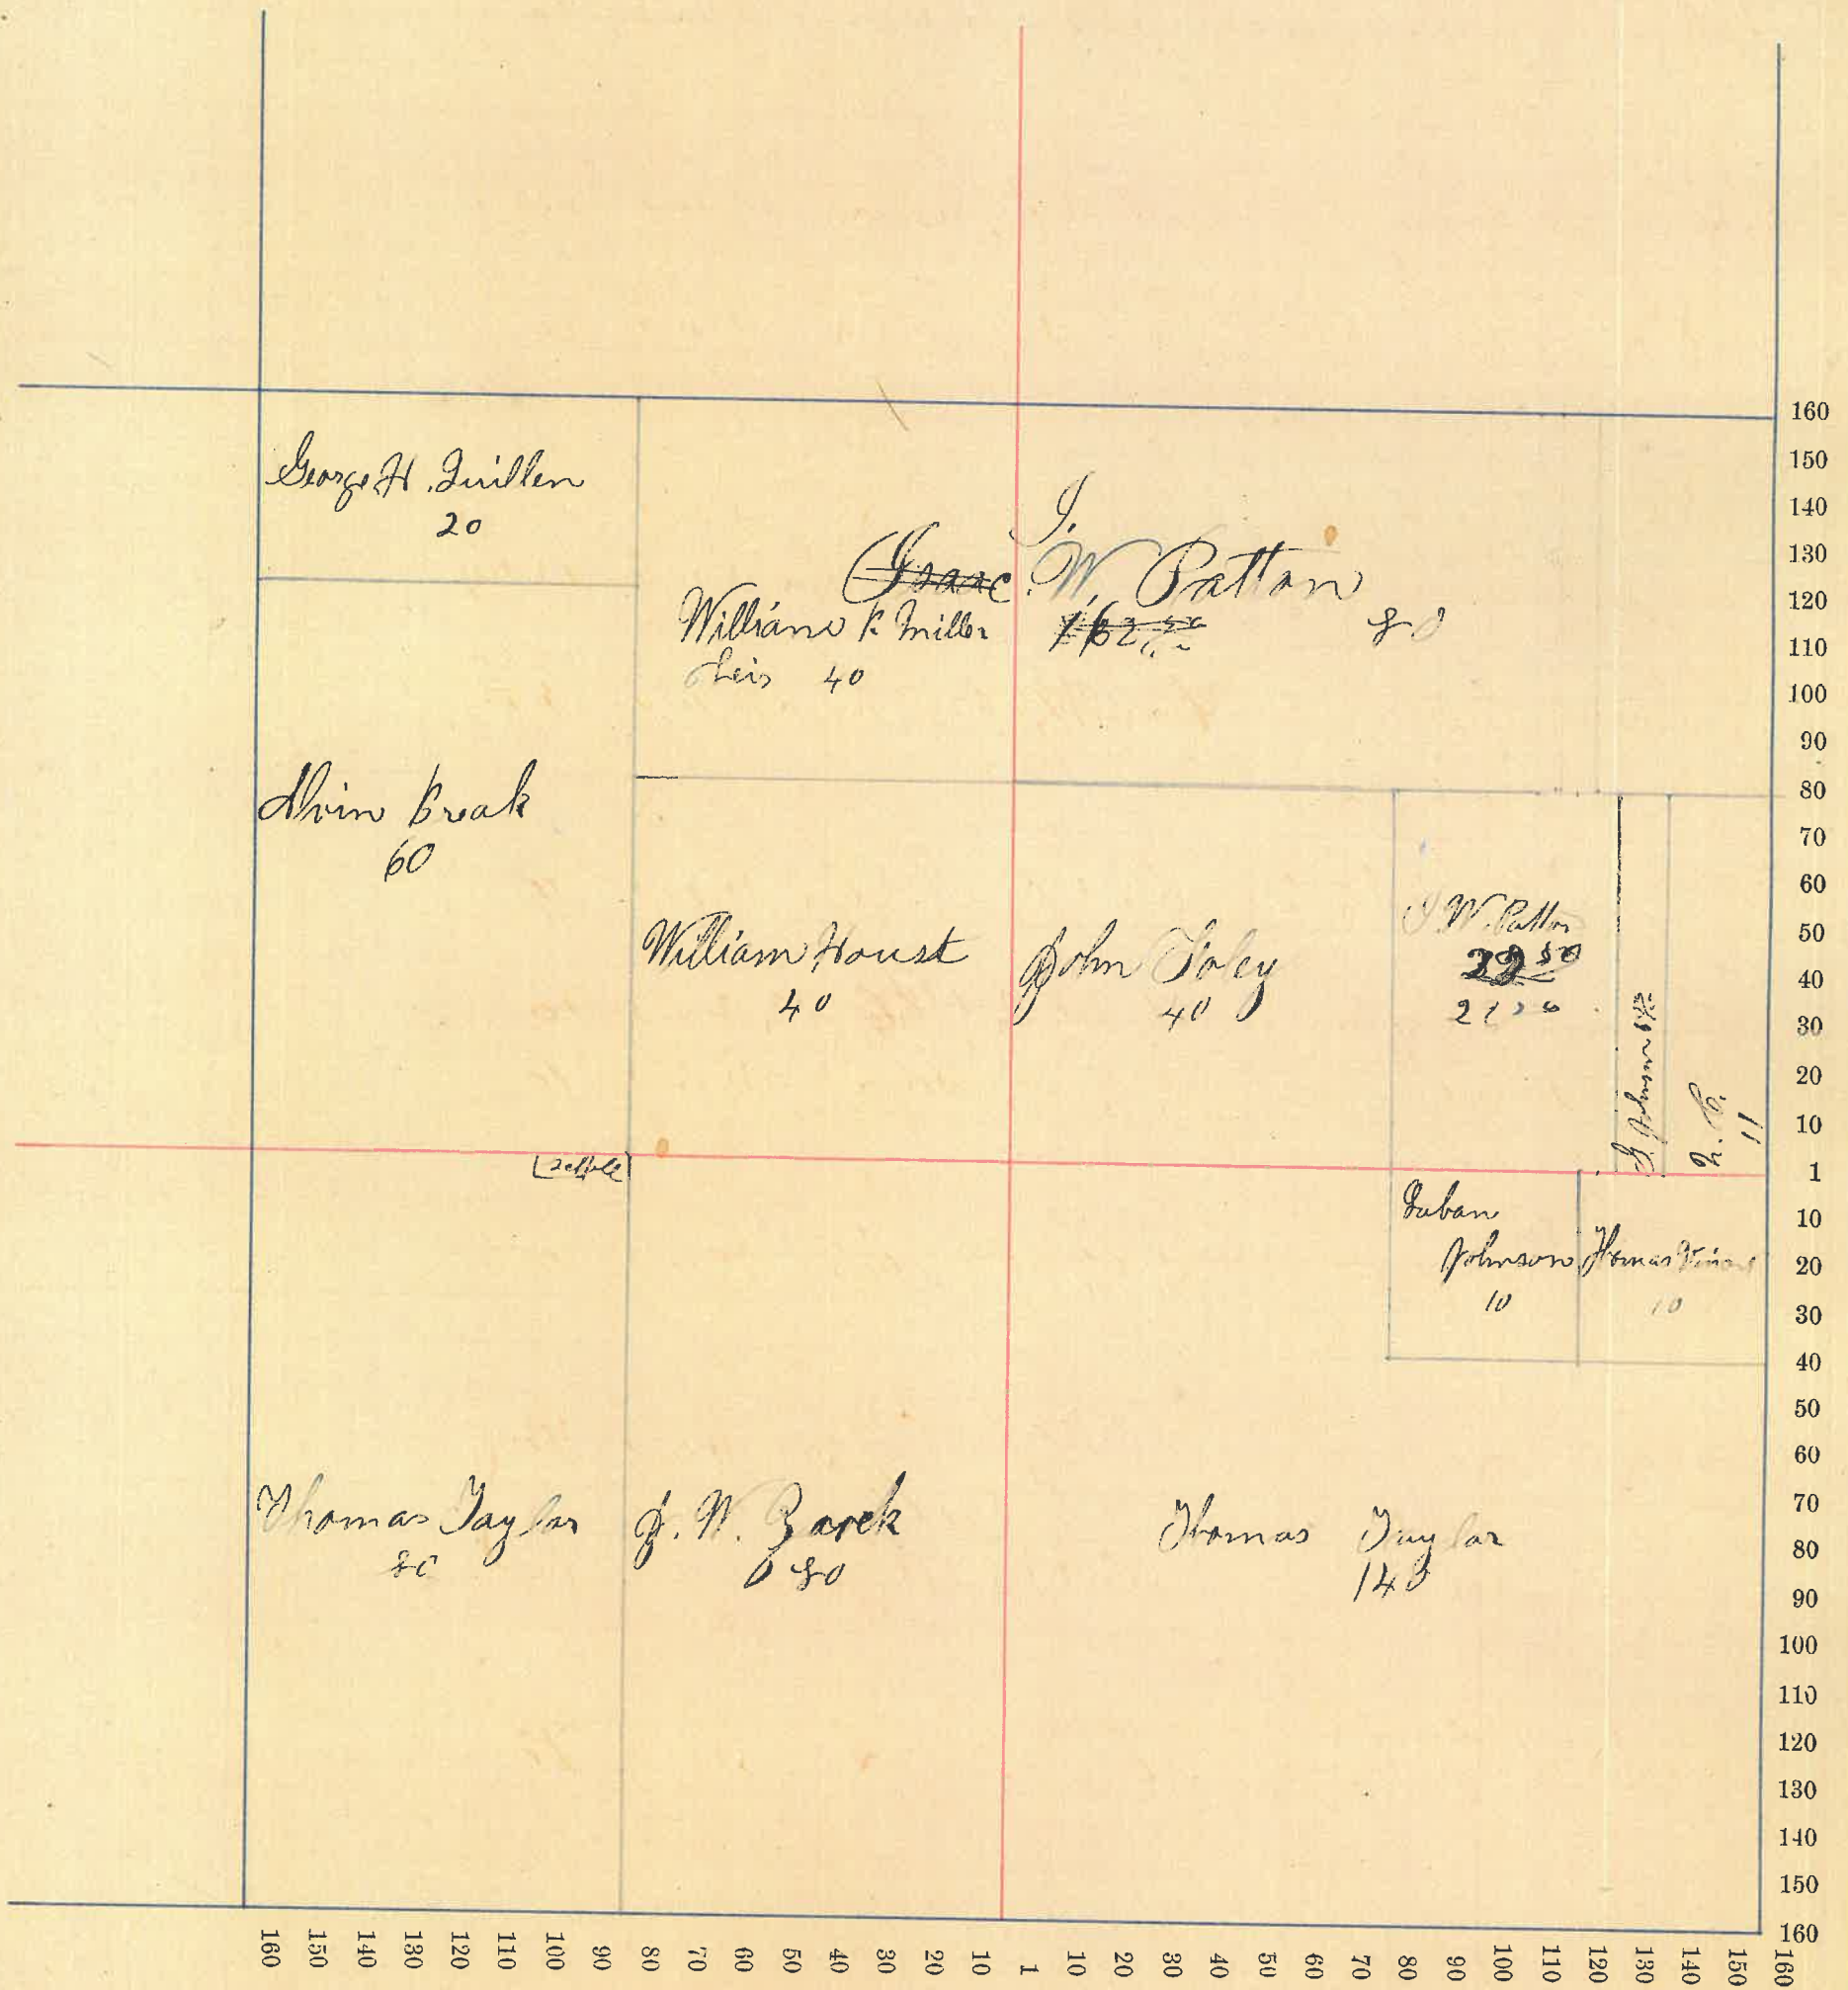 George H. Quillen
20
I.
Isaac W. Patton
William K Miller
heis 40
162 50
80
Alvin Break
60
William Houst
40
John Foley
40
I W. Patton
39 50
J. Johnson 6 1/2
N. C.
11
Johnson
10
Thomas
10
Thomas Taylor
80
J. W. Zarek
80
Thomas Taylor
140
160
150
140
130
120
110
100
90
80
70
60
50
40
30
20
10
1
10
20
30
40
50
60
70
80
90
100
110
120
130
140
150
160
160 150 140 130 120 110 100 90 80 70 60 50 40 30 20 10 1 10 20 30 40 50 60 70 80 90 100 110 120 130 140 150 160